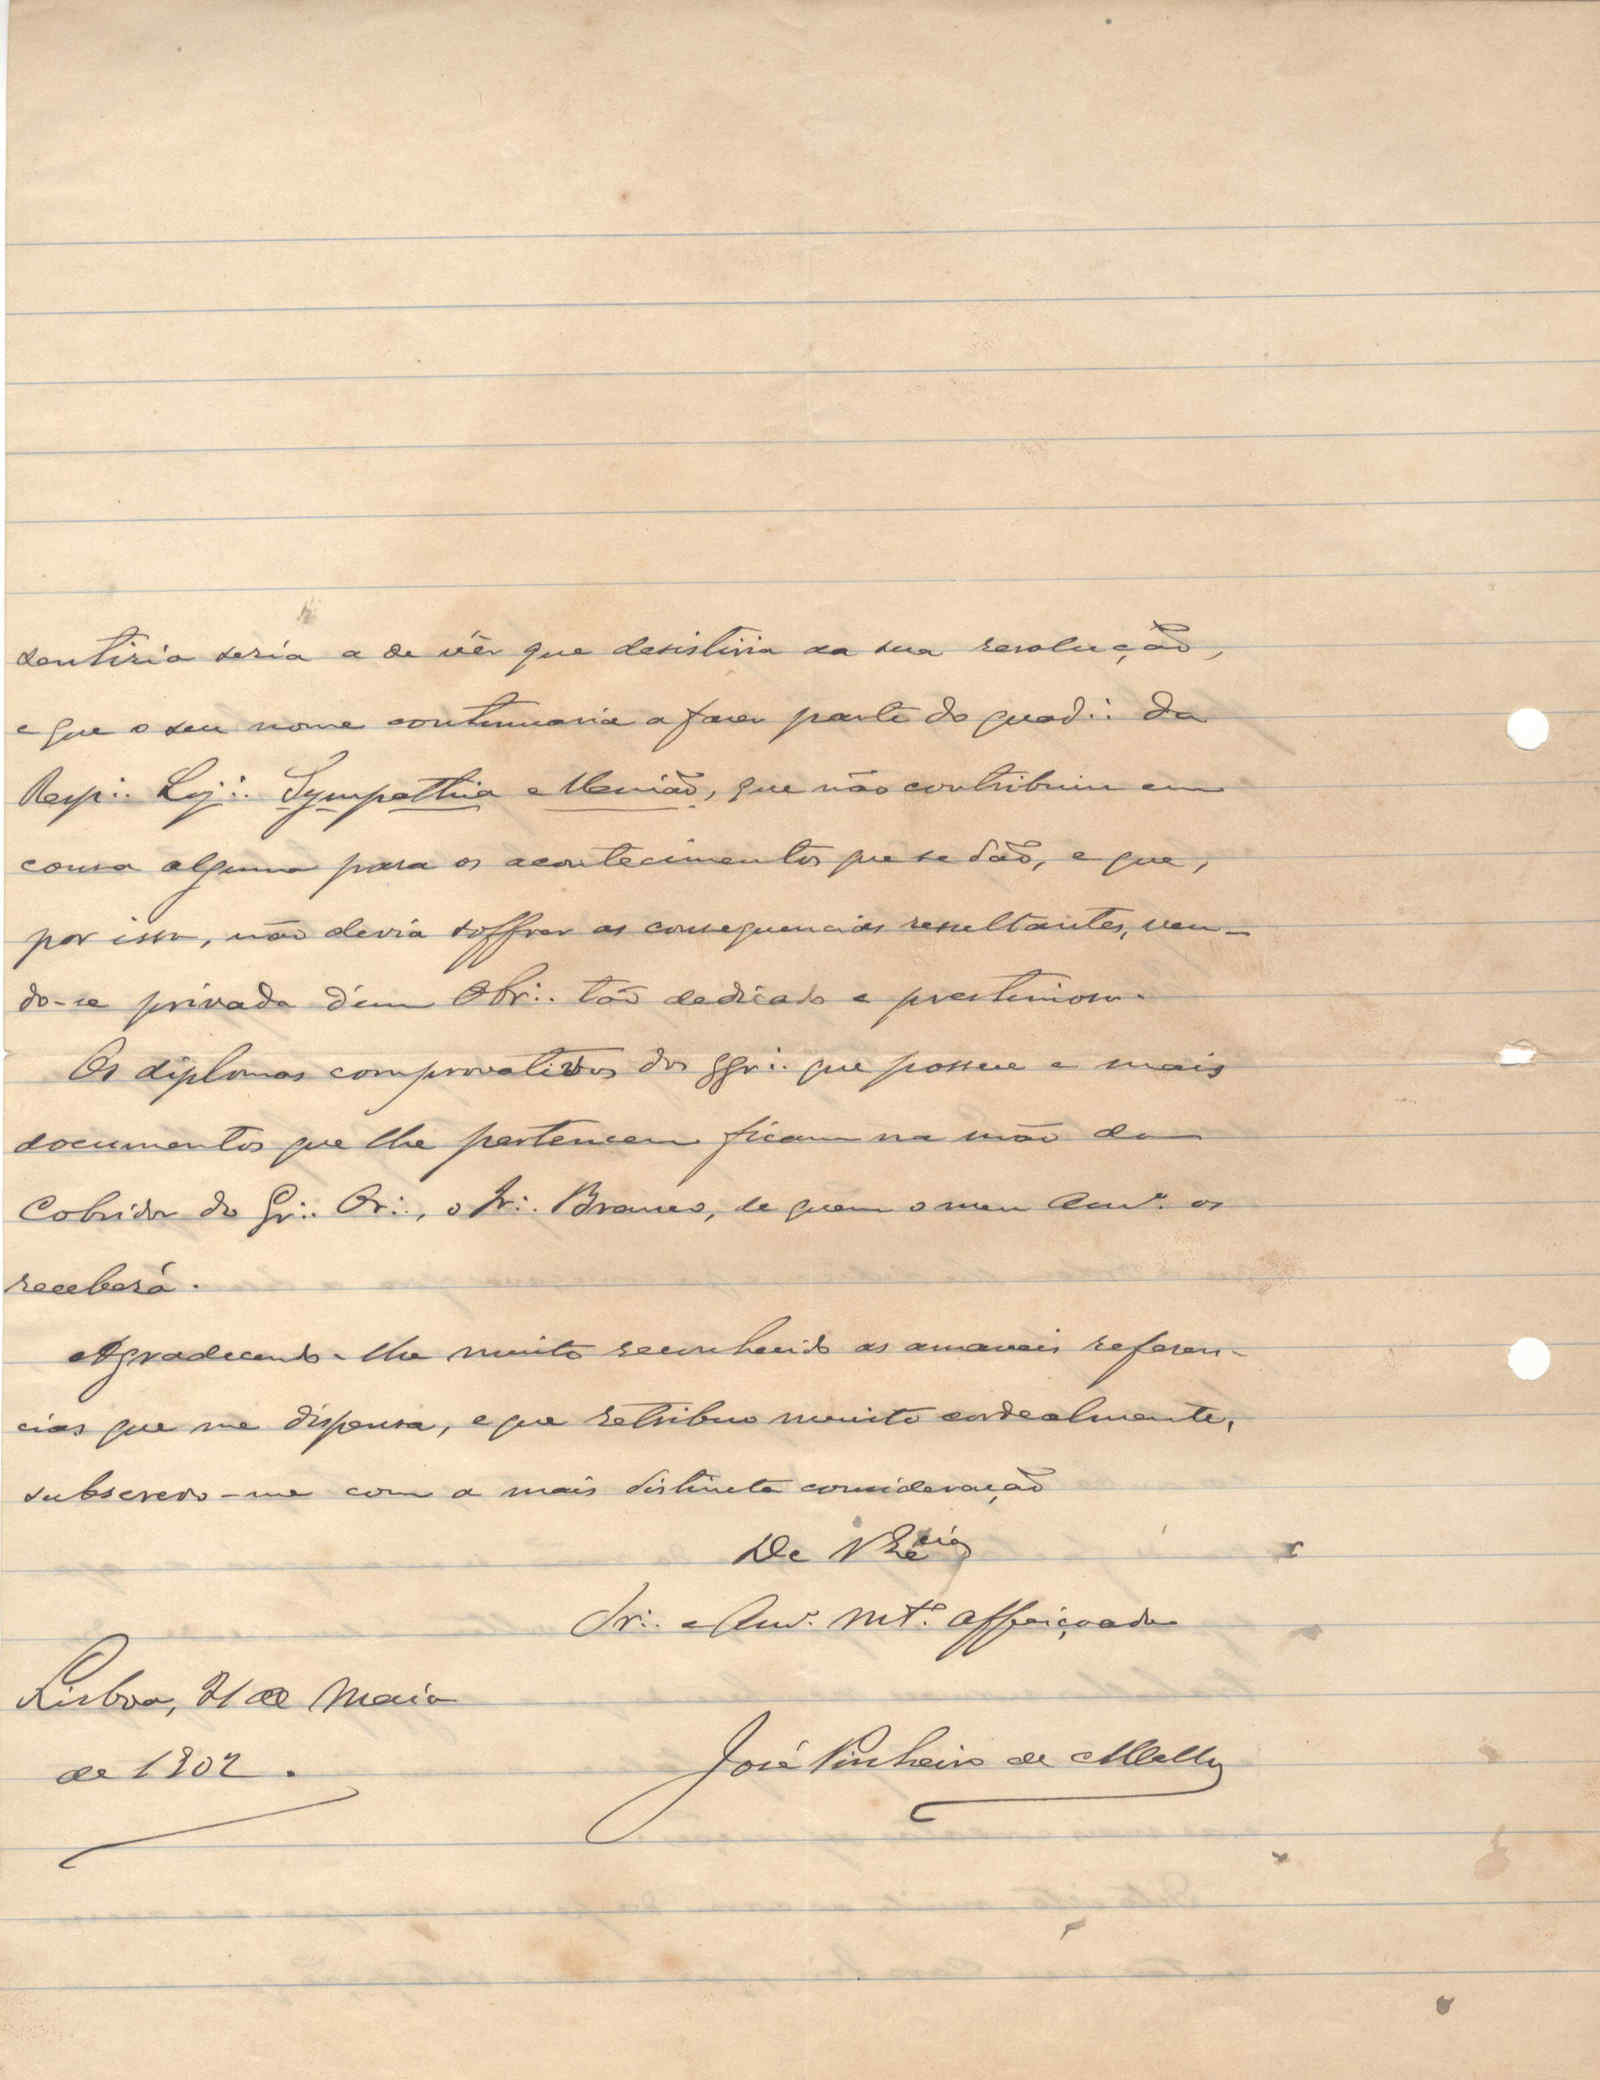 sentiria seria a de vêr que desistiria da sua resolução,
e que o seu nome continuaria a fazer parte do quad∴ da
Resp∴ Loj∴ Sympathia e União, que não contribuiu em
cousa alguma para os acontecimentos que se dão, e que,
por isso, não devia soffrer as consequencias resultantes, ven-
do-se privada d'um Obr∴ tão dedicado e prestimoso.
Os diplomas comprovativos dos ggr∴ que possue e mais
documentos que lhe pertencem ficam na mão do
Cobridor do Gr∴ Or∴, o Ir∴ Branco, de quem o meu Am.º os
receberá.
Agradecendo-lhe muito reconhecido as amaveis referen-
cias que me dispensa, e que retribuo muito cordealmente,
subscrevo-me com a mais distincta consideração
De V. Ex.cia
Ir∴ e Am.º Mt.º affeiçoado
Lisboa, 21 de Maio
de 1902.
José Pinheiro de Mello